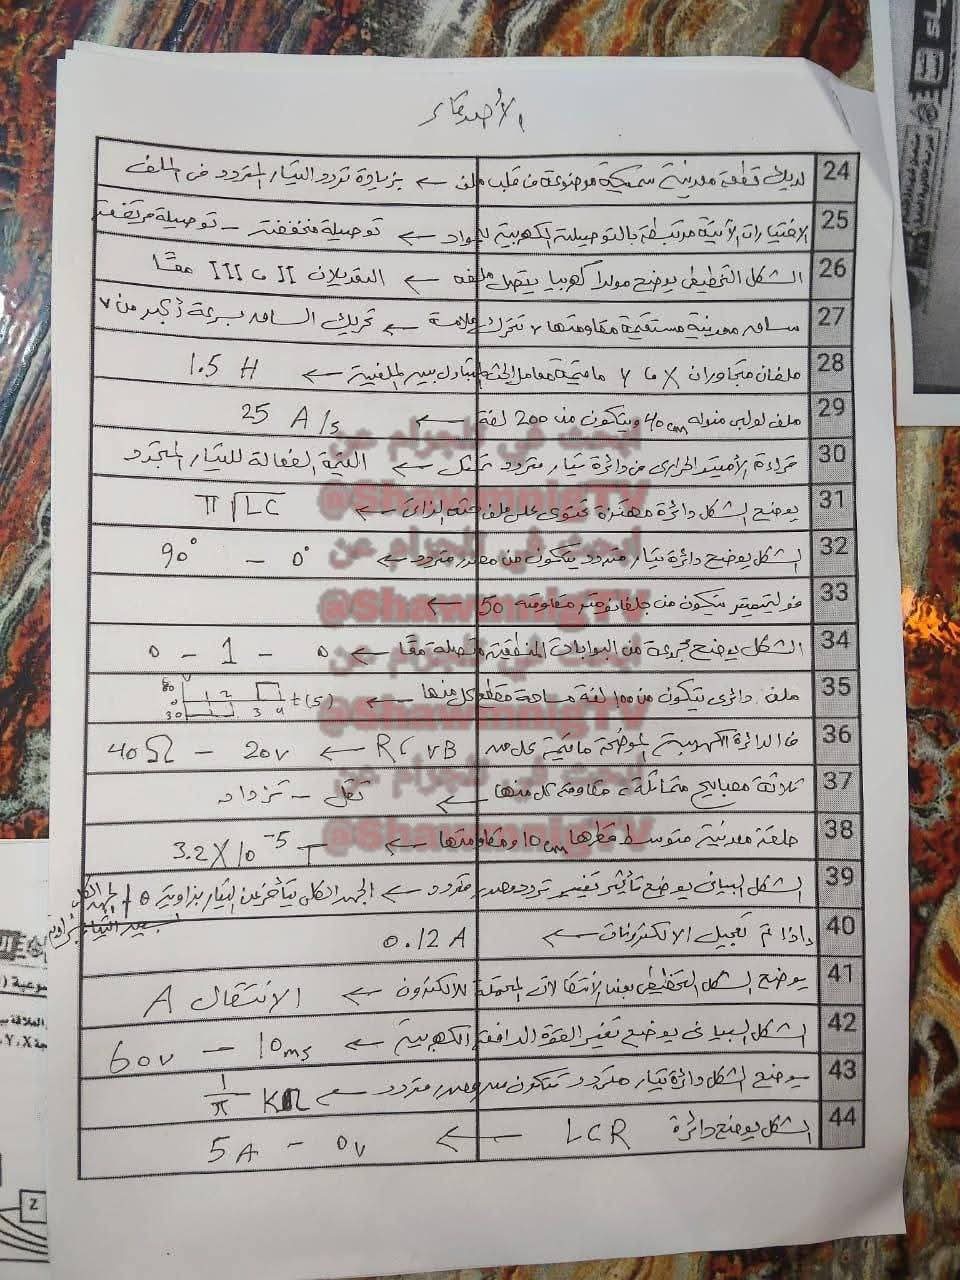 24 لديك قطعة معدنية سميكة موضوعة في قلب ملف ← بزيادة تردد التيار المتردد في الملف
25 الاختيارات الآتية مرتبطة بالتوصيلية الكهربية للمواد ← توصيلة منخفضة – توصيلة مرتفعة
26 الشكل التخطيطي يوضح مولدا كهربيا يتصل ملفه ← التعديلان II و III معًا
27 ساق معدنية مستقيمة مقاومتها r تتحرك ← تحريك الساق بسرعة أكبر من v
28 ملفان متجاوران X و Y ما قيمة معامل الحث المتبادل بين الملفين ← 1.5 H
29 ملف لولبي طوله 40 cm ويتكون من 200 لفة ← 25 A/s
30 قراءة الأميتر الحراري في دائرة تيار متردد تمثل ← القيمة الفعالة للتيار المتردد
31 يوضح الشكل دائرة مهتزة تحتوي على ملف حثه الذاتي ← π √LC
32 الشكل يوضح دائرة تيار متردد يتكون من مصدر متردد ← 0° – 90°
33 فولتيميتر يتكون من جلفانومتر مقاومته 50 ←
34 الشكل يوضح مجموعة من البوابات المنطقية متصلة معًا ← 0 – 1 – 0
35 ملف دائري يتكون من 100 لفة مساحة مقطع كل منها ← t(s)
36 في الدائرة الكهربية الموضحة ما قيمة كل من R و VB ← 20v – 40 Ω
37 ثلاثة مصابيح متماثلة، مقاومة كل منها ← تقل – تزداد
38 حلقة معدنية متوسط قطرها 10 cm ومقاومتها ← 3.2 X 10⁻⁵ T
39 الشكل البياني يوضح تأثير تغيير تردد مصدر متردد ← الجهد الكلي يتأخر عن التيار بزاوية θ
40 إذا تم تعجيل الالكترونات ← 0.12 A
41 يوضح الشكل التخطيطي بعض الانتقالات المحتملة للالكترون ← الانتقال A
42 الشكل البياني يوضح تغير القوة الدافعة الكهربية ← 10ms – 60v
43 يوضح الشكل دائرة تيار متردد تتكون من مصدر متردد ← 1/π KΩ
44 الشكل يوضح دائرة LCR ← 0v – 5A
ابحث في تلجرام عن
@ShawmnigTV
ابحث في تلجرام عن
@ShawmnigTV
ابحث في تلجرام عن
@ShawmnigTV
ابحث في تلجرام عن
@ShawmnigTV
Z